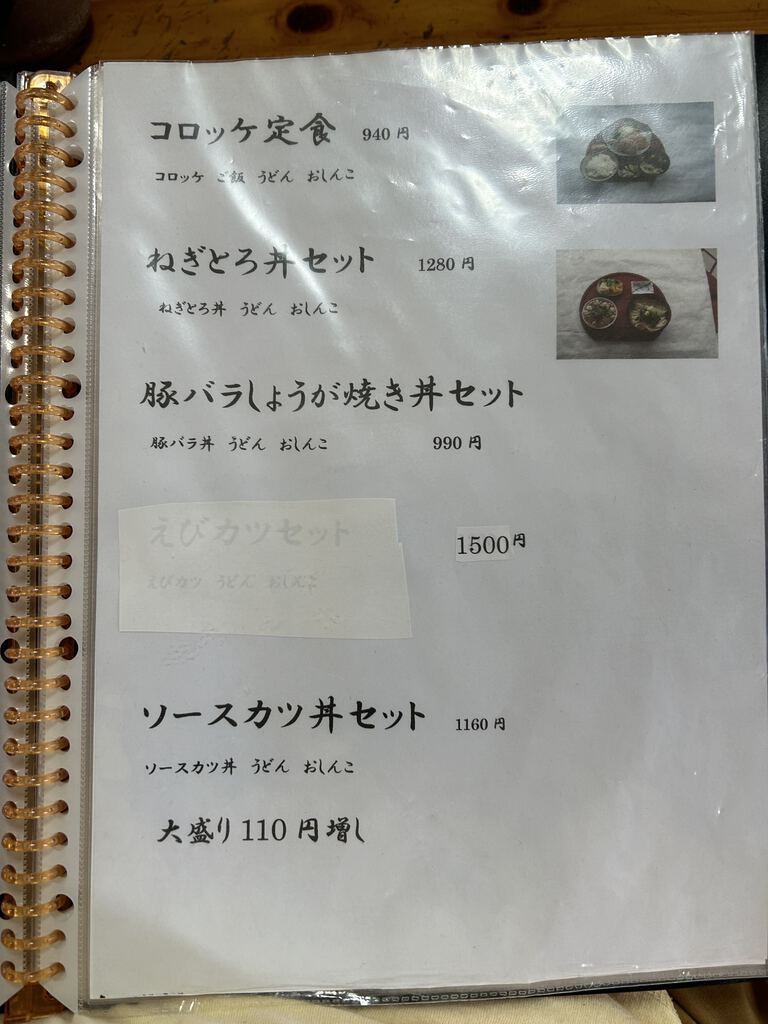 コロッケ定食 940円
コロッケ ご飯 うどん おしんこ
ねぎとろ丼セット 1280円
ねぎとろ丼 うどん おしんこ
豚バラしょうが焼き丼セット
豚バラ丼 うどん おしんこ 990円
えびカツセット 1500円
えびカツ うどん おしんこ
ソースカツ丼セット 1160円
ソースカツ丼 うどん おしんこ
大盛り110円増し